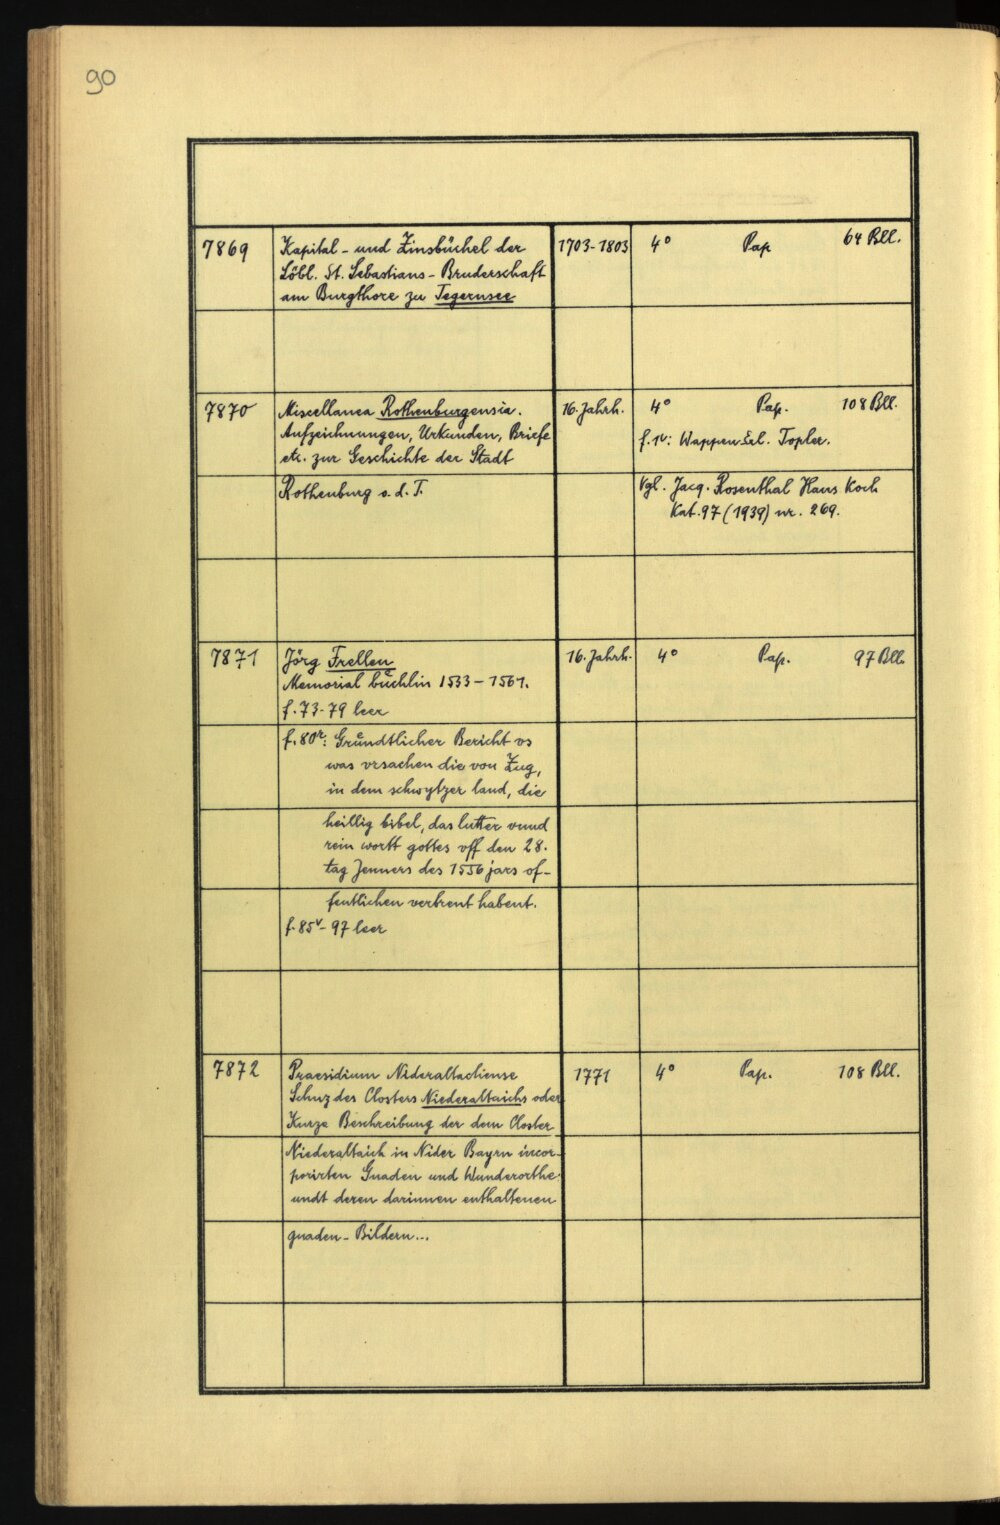 90
7869 Kapital- und Zinsbüchel der 1703-1803 4° Pap 64 Bll.
Löbl. St. Sebastians-Bruderschaft
am Burgthore zu Tegernsee
7870 Miscellanea Rothenburgensia. 16. Jahrh. 4° Pap. 108 Bll.
Aufzeichnungen, Urkunden, Briefe f. 1v: Wappen Topler.
etc. zur Geschichte der Stadt
Rothenburg o. d. T. Vgl. Jacq. Rosenthal Hans Koch
Kat. 97 (1939) nr. 269.
7871 Jörg Frellen 16. Jahrh. 4° Pap. 97 Bll.
Memorial buͤchlin 1533-1561.
f. 73-79 leer
f. 80r: Gruͤndtlicher Bericht vs
was vrsachen die von Zug,
in dem schwytzer land, die
heillig bibel, das lutter vnnd
rein wortt gottes vff den 28.
tag Jenners des 1556 jars of-
fentlichen verbrent habent.
f. 85v-97 leer
7872 Praesidium Nideraltachense 1771 4° Pap. 108 Bll.
Schuz des Closters Niederaltaichs oder
Kurze Beschreibung der dem Closter
Niederaltaich in Nider Bayrn incor-
porirten Gnaden und Wunderorthe
undt deren darinnen enthaltenen
gnaden-Bildern...